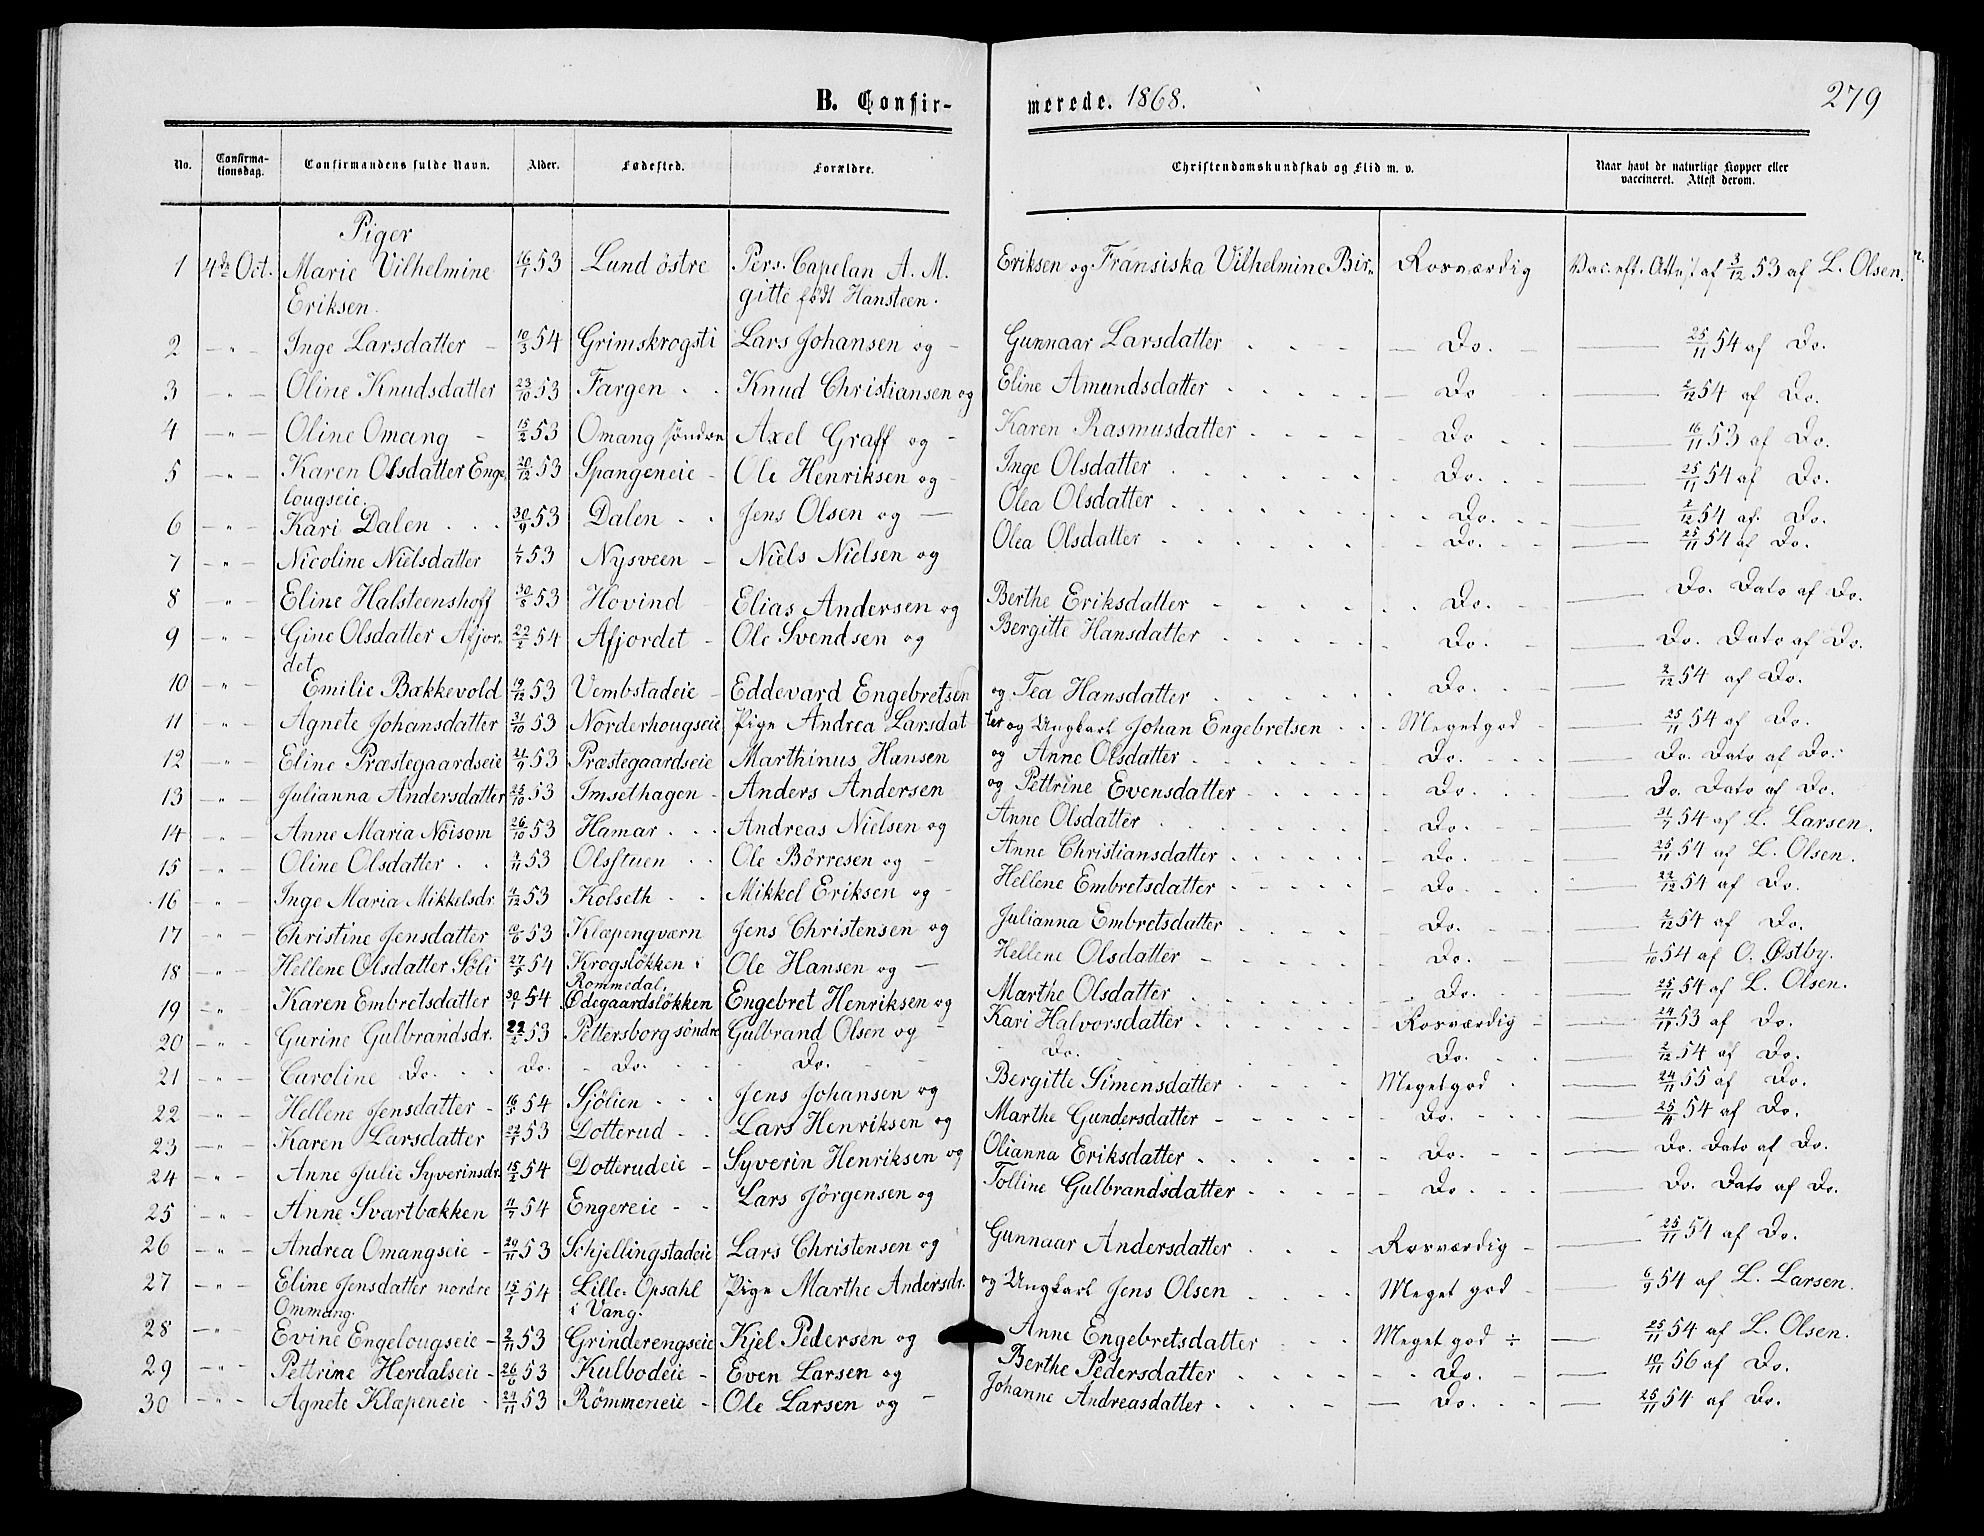 B. Confirmerede. 1868. 279
No. Confirmationsdag. Confirmandens fulde Navn. Alder. Fødested. Forældre. Christendomskundskab og Flid m. v. Naar havt de naturlige Kopper eller vaccineret. Attest derom.
Piger
1 4de Oct. Marie Vilhelmine 16/1 53 Lund östre Pers. Capelan A. M. Eriksen og Fransiska Vilhelmine Bir- Rosværdig Vac. eft. Att. af 3/12 53 af L. Olsen.
Eriksen. gitte født Hansteen.
2 - " - Inge Larsdatter - 10/3 54 Grimskrogsti Lars Johansen og - Gunnaar Larsdatter Do. 25/11 54 af Do.
3 - " - Oline Knudsdatter 23/10 53 Fargen Knud Christiansen og Eline Amundsdatter Do 2/12 54 af Do.
4 - " - Oline Omang - 15/2 53 Omang søndre Axel Graff og - Karen Rasmusdatter Do 16/11 53 af Do.
5 - " - Karen Olsdatter Enge- 20/12 53 Spangeneie - Ole Henriksen og - Inge Olsdatter Do. 25/11 54 af Do.
lougseie.
6 - " - Kari Dalen 30/9 53 Dalen Jens Olsen og - Olea Olsdatter Do. 2/12 54 af. Do.
7 - " - Nicoline Nielsdatter 1/7 53 Nysveen - Niels Nielsen og Olea Olsdatter Do. 25/11 54 af Do.
8 - " - Eline Halsteenshoff 30/8 53 Hovind Elias Andersen og Berthe Eriksdatter Do. Do. Dato af Do.
9 - " - Gine Olsdatter Afjor- 22/2 54 Afjordet - Ole Svendsen og Bergitte Hansdatter Do. Do. Dato af Do.
det
10 - " - Emilie Bækkevold 19/12 53 Vembstadeie - Eddevard Engebretsen og Tea Hansdatter Do. 2/12 54 af Do.
11 - " - Agnete Johansdatter 31/10 53 Norderhougseie Pige Andrea Larsdatter og Ungkarl Johan Engebretsen Meget god 25/11 54 af Do.
12 - " - Eline Præstegaardseie 21/9 53 Præstegaardseie Marthinus Hansen og Anne Olsdatter Do. Do. Dato af Do.
13 - " - Julianna Andersdatter 22/10 53 Imsethagen - Anders Andersen og Pettrine Evensdatter Do. Do. Dato af Do.
14 - " - Anne Maria Nøisom 26/10 53 Hamar Andreas Nielsen og Anne Olsdatter Do. 31/7 54 af L. Larsen.
15 - " - Oline Olsdatter 3/11 53 Olsstuen Ole Børresen og - Anne Christiansdatter Do. 25/11 54 af L. Olsen.
16 - " - Inge Maria Mikkelsdr. 2/12 53 Kolseth Mikkel Eriksen og - Hellene Embretsdatter Do. 22/12 54 af Do.
17 - " - Christine Jensdatter 10/6 53 Klæpengværn Jens Christensen og Julianna Embretsdatter Do. 2/12 54 af Do.
18 - " - Hellene Olsdatter Søli 27/5 54 Krogsløkken i Ole Hansen og - Hellene Olsdatter Do. 1/10 54 af O. Østby.
Rommedal.
19 - " - Karen Embretsdatter 30/1 54 Ødegaardsløkken Engebret Henriksen og Marthe Olsdatter Do. 25/11 54 af L. Olsen.
20 - " - Gurine Gulbrandsdr. 22/2 53 Pettersborg söndre Gulbrand Olsen og - Kari Halvorsdatter Rosværdig - 24/11 53 af Do.
21 - " - Caroline Do. Do. Do. Do. Do. Do. 2/12 54 af Do.
22 - " - Hellene Jensdatter - 16/5 54 Sjölien Jens Johansen og Bergitte Simensdatter Meget god 24/11 55 af Do.
23 - " - Karen Larsdatter 22/1 53 Dotterud Lars Henriksen og Marthe Gundersdatter - Do. 25/11 54 af Do.
24 - " - Anne Julie Syverinsdr. 15/2 54 Dotterudeie - Syverin Henriksen og Olianna Eriksdatter Do. Do. Dato af Do.
25 - " - Anne Svartbækken 2/7 54 Engereie Lars Jörgensen og Tolline Gulbrandsdatter Do Do. Dato af Do.
26 - " - Andrea Omangseie - 29/11 53 Schjellingstadeie Lars Christensen og Gunnaar Andersdatter Rosværdig - 25/11 54 af Do.
27 - " - Eline Jensdatter nordre 15/1 54 Lille. Opsahl Pige Marthe Andersdr. og Ungkarl Jens Olsen Meget god 6/9 54 af L. Larsen.
Ommang. i Vang.
28 - " - Evine Engelougseie - 2/11 53 Grinderengseie Kjel Pedersen og Anne Engebretsdatter Meget god ÷ 25/11 54 af L. Olsen.
29 - " - Pettrine Herdalseie - 26/6 53 Kulbodeie - Even Larsen og Berthe Pedersdatter Do. 10/11 56 af Do.
30 - " - Agnete Klæpeneie 24/11 53 Rømmeneie - Ole Larsen og - Johanne Andreasdatter Do. 25/11 54 af Do.